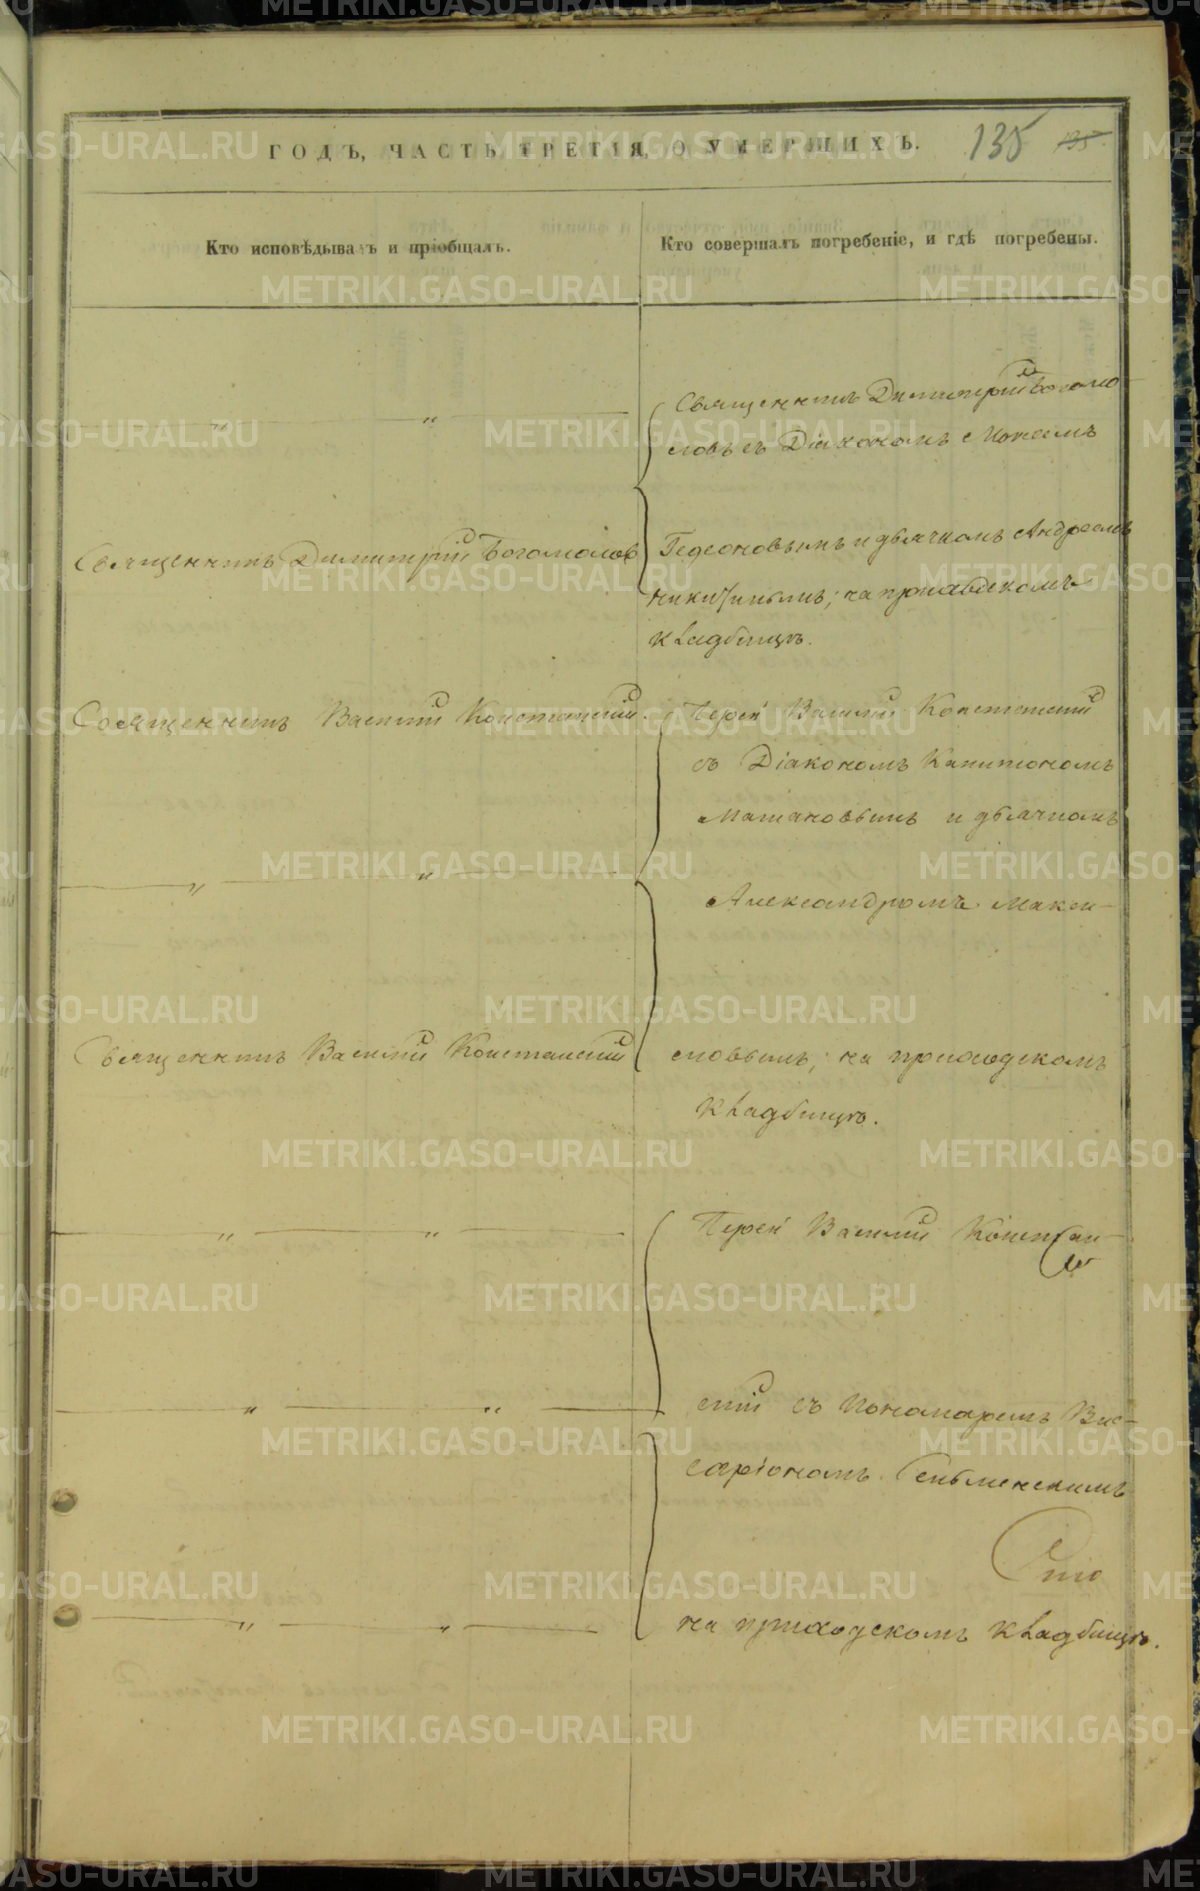 ГОДЪ, ЧАСТЬ ТРЕТІЯ, О УМЕРШИХЪ. 135 135
Кто исповѣдывалъ и пріобщалъ. Кто совершалъ погребеніе, и гдѣ погребены.
Священникъ Димитрій Богомо-
ловъ съ Діакономъ Моисеемъ
Священникъ Димитрій Богомоловъ
Гедеоновымъ и дьячкомъ Андреемъ
Никитинымъ; на приходскомъ
кладбищѣ.
Священникъ Василій Констанскій.
Іерей Василій Констанскій
съ Діакономъ Капитономъ
и дьячкомъ
Александромъ Макси-
Священникъ Василій Констанскій
мовымъ, на приходскомъ
кладбищѣ.
Іерей Василій Констан-
скій съ Пономаремъ Вис-
саріономъ
на приходскомъ кладбищѣ.
METRIKI.GASO-URAL.RU